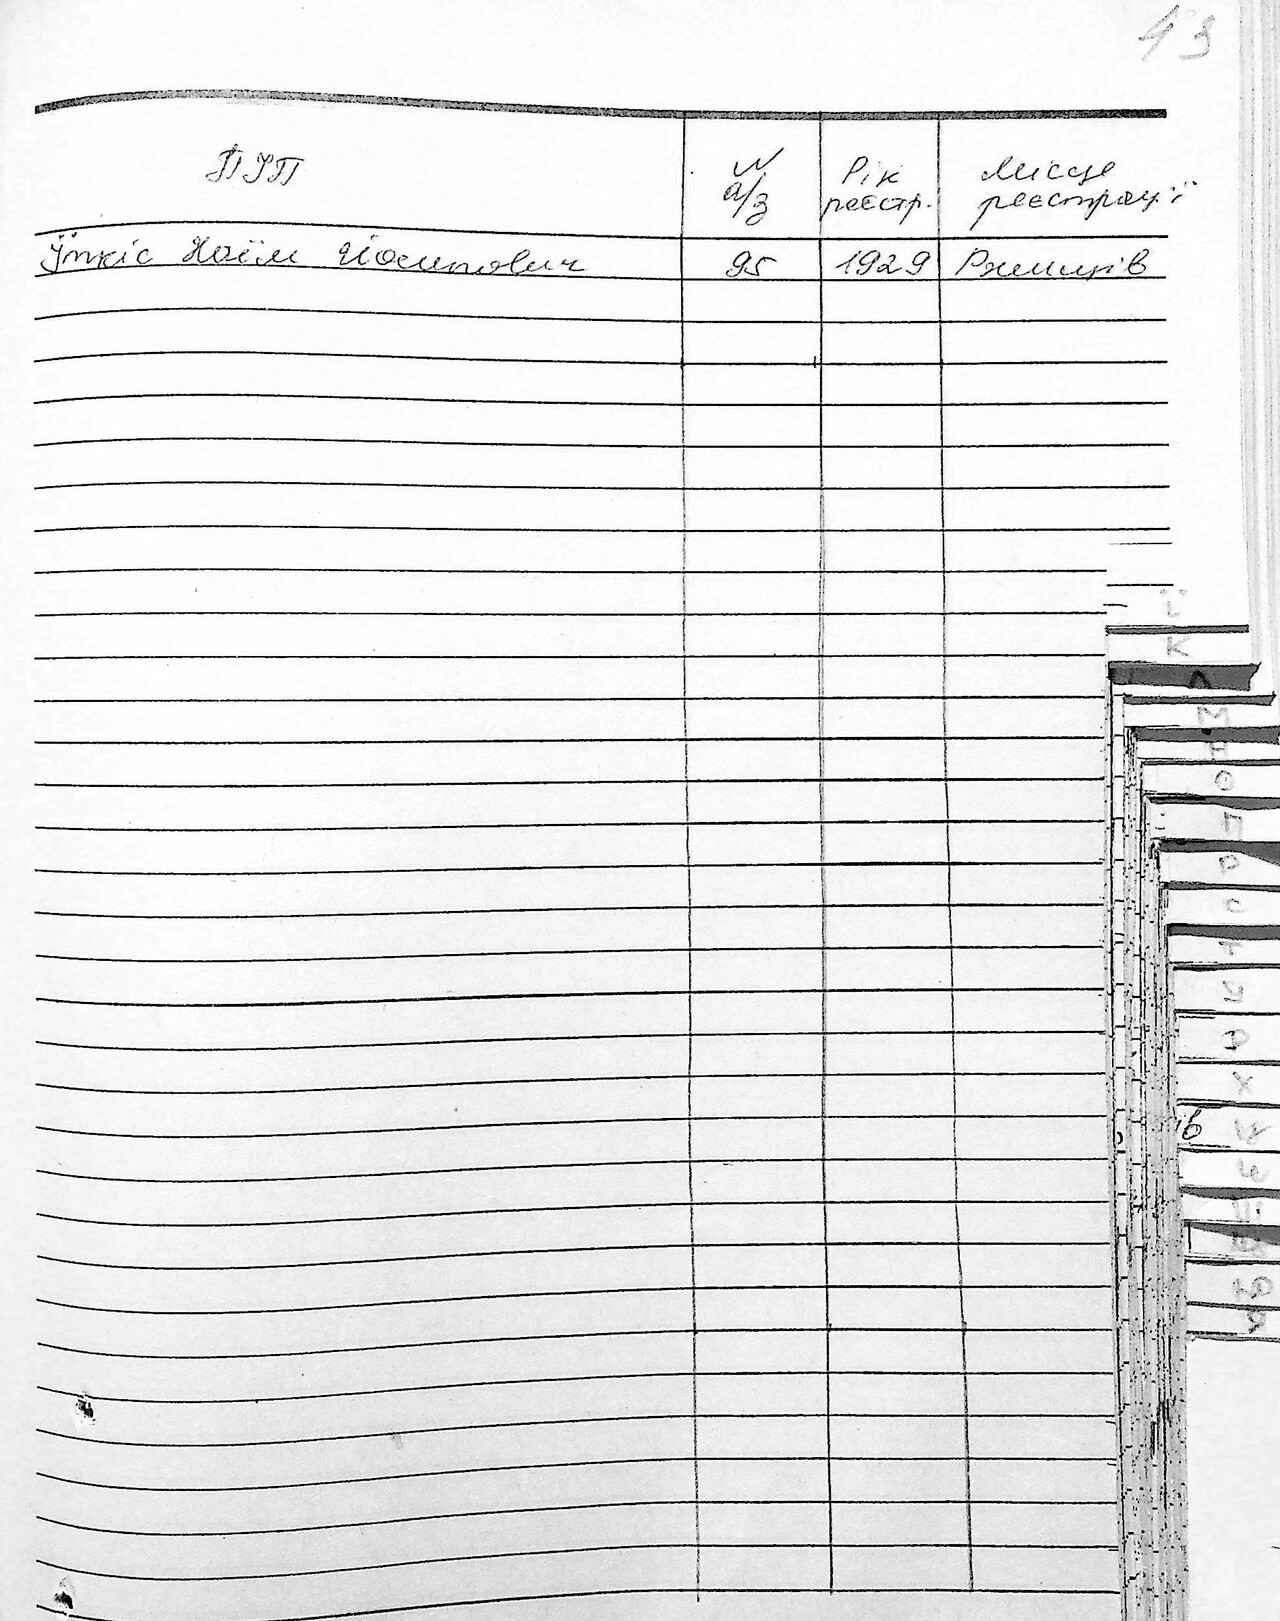 43
ПІП
N а/з
Рік реєстр.
Місце реєстрації
Їпкіс Хаїм Йосипович 95 1929 Ржищів
ї
К
Л
М
Н
О
П
Р
С
Т
Ф
Х
ів